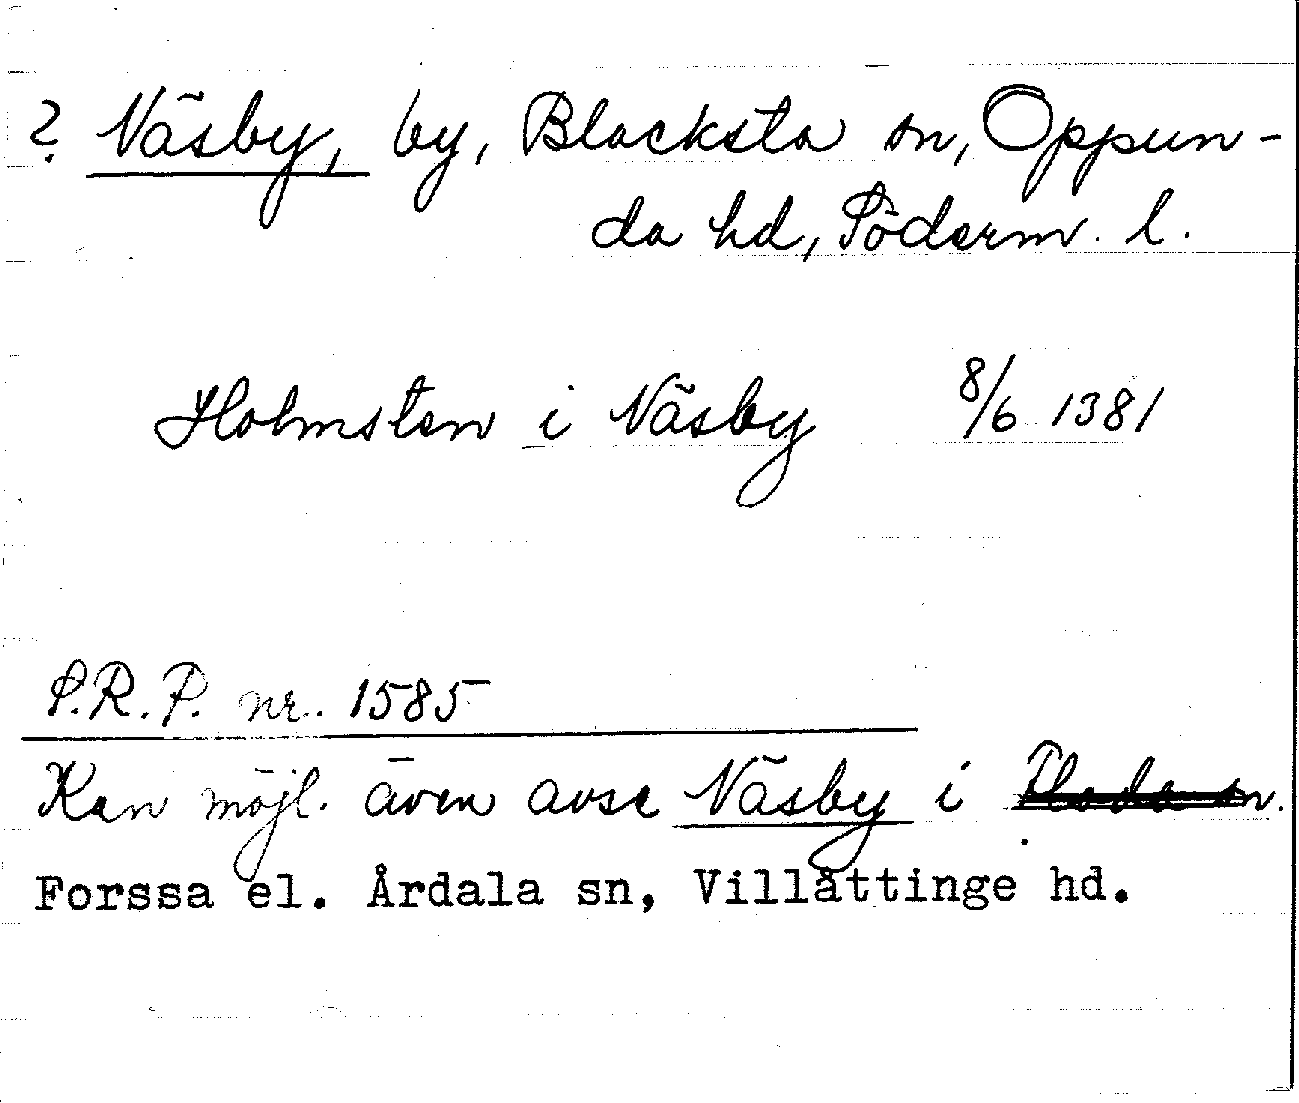 ? Näsby, by, Blacksta sn, Oppun-
da hd, Söderm. l.
Holmsten i Näsby 8/6 1381
S.R.P. nr. 1585
Kan möjl. även avse Näsby i Floda sn.
Forssa el. Årdala sn, Villåttinge hd.